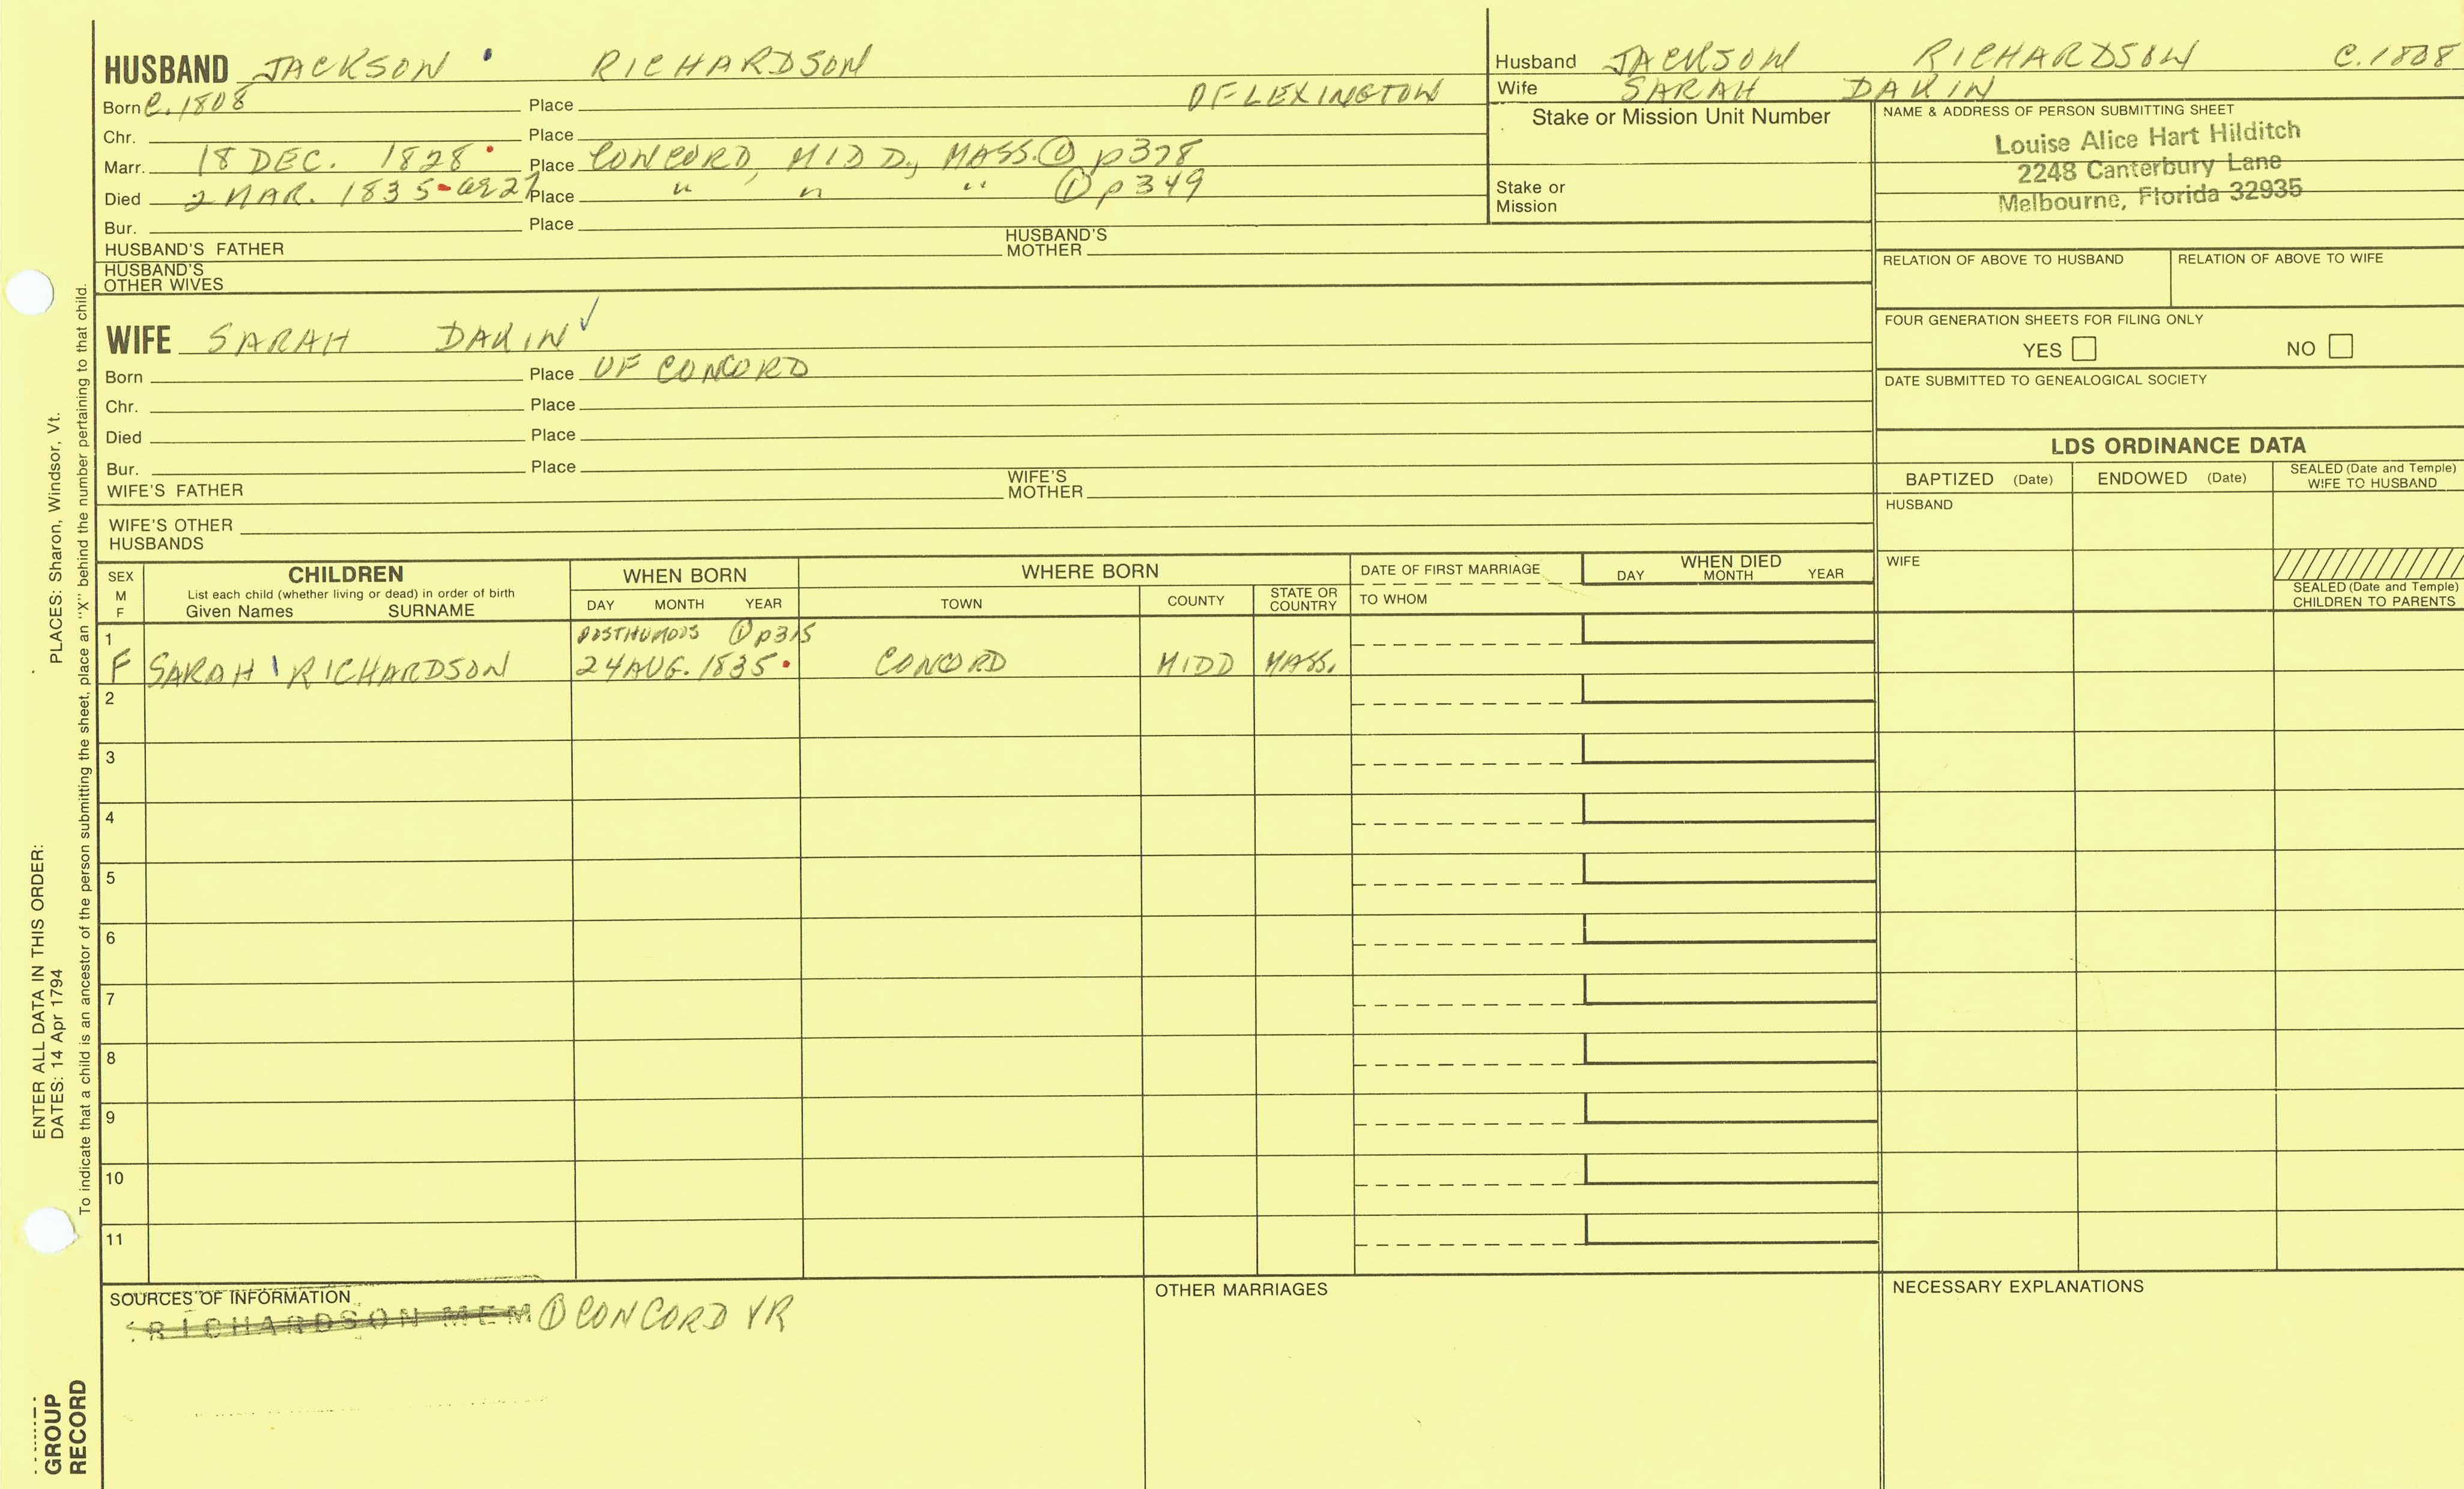 HUSBAND JACKSON RICHARDSON
Born C. 1808 Place OF LEXINGTON
Chr. Place
Marr. 18 DEC. 1828 Place CONCORD, MIDD., MASS. ① p378
Died 2 MAR. 1835 - ae 27 Place " " " ① p349
Bur. Place
HUSBAND'S FATHER HUSBAND'S MOTHER
HUSBAND'S OTHER WIVES
Husband JACKSON RICHARDSON C. 1808
Wife SARAH DAKIN
Stake or Mission Unit Number
Stake or Mission
NAME & ADDRESS OF PERSON SUBMITTING SHEET
Louise Alice Hart Hilditch
2248 Canterbury Lane
Melbourne, Florida 32935
RELATION OF ABOVE TO HUSBAND RELATION OF ABOVE TO WIFE
FOUR GENERATION SHEETS FOR FILING ONLY
YES NO
DATE SUBMITTED TO GENEALOGICAL SOCIETY
WIFE SARAH DAKIN ✓
Born Place OF CONCORD
Chr. Place
Died Place
Bur. Place
WIFE'S FATHER WIFE'S MOTHER
WIFE'S OTHER HUSBANDS
LDS ORDINANCE DATA
BAPTIZED (Date) ENDOWED (Date) SEALED (Date and Temple) WIFE TO HUSBAND
HUSBAND
WIFE
SEALED (Date and Temple) CHILDREN TO PARENTS
SEX M F
CHILDREN
List each child (whether living or dead) in order of birth
Given Names SURNAME
WHEN BORN
DAY MONTH YEAR
WHERE BORN
TOWN COUNTY STATE OR COUNTRY
DATE OF FIRST MARRIAGE
TO WHOM
WHEN DIED
DAY MONTH YEAR
1 POSTHUMOUS ① p315
F SARAH RICHARDSON 24 AUG. 1835 CONCORD MIDD MASS.
2
3
4
5
6
7
8
9
10
11
SOURCES OF INFORMATION
RICHARDSON MEM ① CONCORD VR
OTHER MARRIAGES
NECESSARY EXPLANATIONS
ENTER ALL DATA IN THIS ORDER:
DATES: 14 Apr 1794 PLACES: Sharon, Windsor, Vt.
To indicate that a child is an ancestor of the person submitting the sheet, place an "X" behind the number pertaining to that child.
GROUP
RECORD